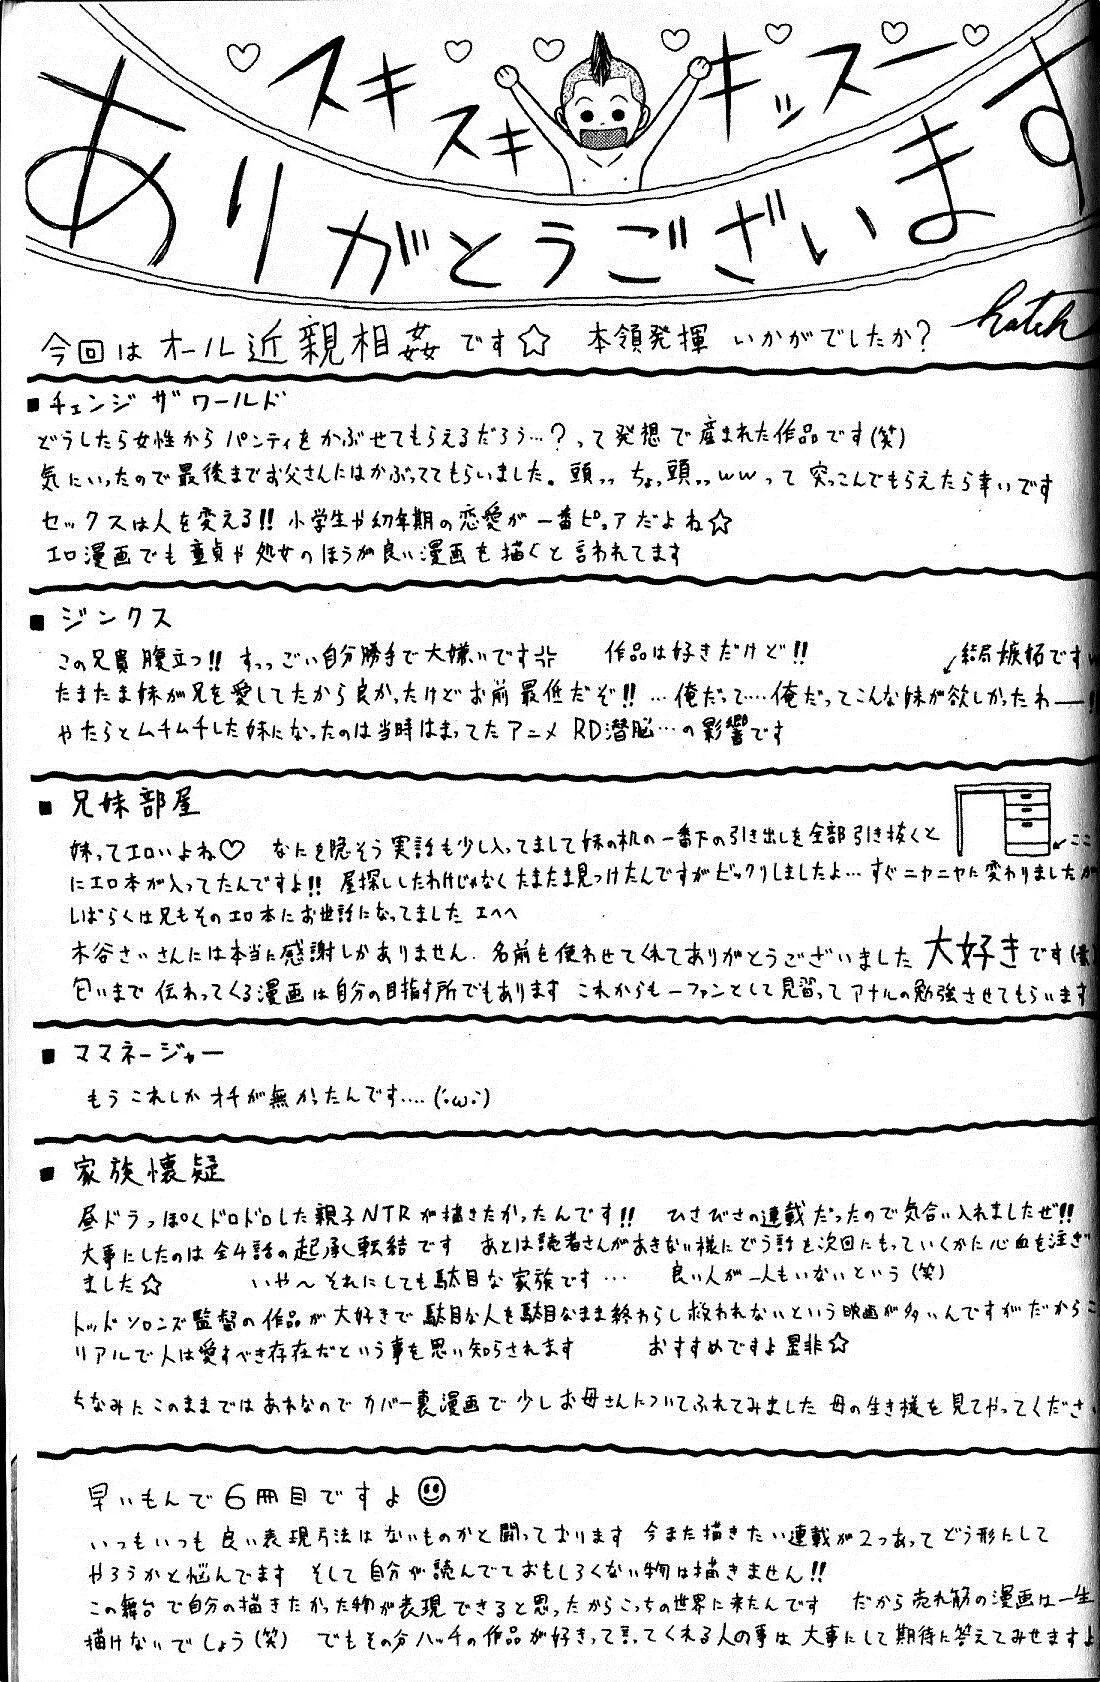 スキスキキッズー
ありがとうございます
今回はオール近親相姦です☆ 本領発揮 いかがでしたか？ hatch
■チェンジ ザ ワールド
どうしたら女性からパンティをかぶせてもらえるだろう…？って発想で産まれた作品です(笑)
気にいったので最後までお父さんにはかぶっててもらいました。頭っ ちょっ頭っwwって突っこんでもらえたら幸いです
セックスは人を変える!! 小学生や幼年期の恋愛が一番ピュアだよね☆
エロ漫画でも童貞や処女のほうが良い漫画を描くと言われてます
■ジンクス
この兄貴腹立つ!! すっっごい自分勝手で大嫌いです 作品は好きだけど!! 結局嫉妬ですw
たまたま妹が兄を愛してたから良かったけどお前最低だぞ!! …俺だって…俺だってこんな妹が欲しかったわー!!
やたらとムチムチした妹になったのは当時はまってたアニメ RD潜脳…の影響です
■兄妹部屋
妹ってエロいよね♡ なにを隠そう実話も少し入ってまして妹の机の一番下の引き出しを全部引き抜くと ←ここ
にエロ本が入ってたんですよ!! 屋探ししたわけじゃなくたまたま見つけたんですがビックリしましたよ… すぐニヤニヤに変わりましたが
しばらくは兄もそのエロ本にお世話になってました エヘヘ
木谷さいさんには本当に感謝しかありません. 名前を使わせてくれてありがとうございました 大好きです
匂いまで伝わってくる漫画は自分の目指す所でもあります これからも一ファンとして見習ってアナルの勉強させてもらいます
■ママネージャー
もうこれしかオチが無かったんです….(´･ω･`)
■家族懐疑
昼ドラっぽくドロドロした親子NTRが描きたかったんです!! ひさびさの連載だったので気合い入れましたぜ!!
大事にしたのは全4話の起承転結です あとは読者さんがあきない様にどう話を次回にもっていくかに心血を注ぎ
ました☆ いや〜それにしても駄目な家族です… 良い人が一人もいないという(笑)
トッドソロンズ監督の作品が大好きで駄目な人を駄目なまま終わらし救われないという映画が多いんですがだからこ
リアルで人は愛すべき存在だという事を思い知らされます おすすめですよ是非☆
ちなみにこのままではあれなのでカバー裏漫画で少しお母さんについてふれてみました 母の生き様を見てやってくださ
早いもんで6冊目ですよ☺
いつもいつも良い表現方法はないものかと闘っております 今また描きたい連載が2つあってどう形にして
やろうかと悩んでます そして自分が読んでておもしろくない物は描きません!!
この舞台で自分の描きたかった物が表現できると思ったからこっちの世界に来たんです だから売れ筋の漫画は一生
描けないでしょう(笑) でもその分ハッチの作品が好きって言ってくれる人の事は大事にして期待に答えてみせますよ